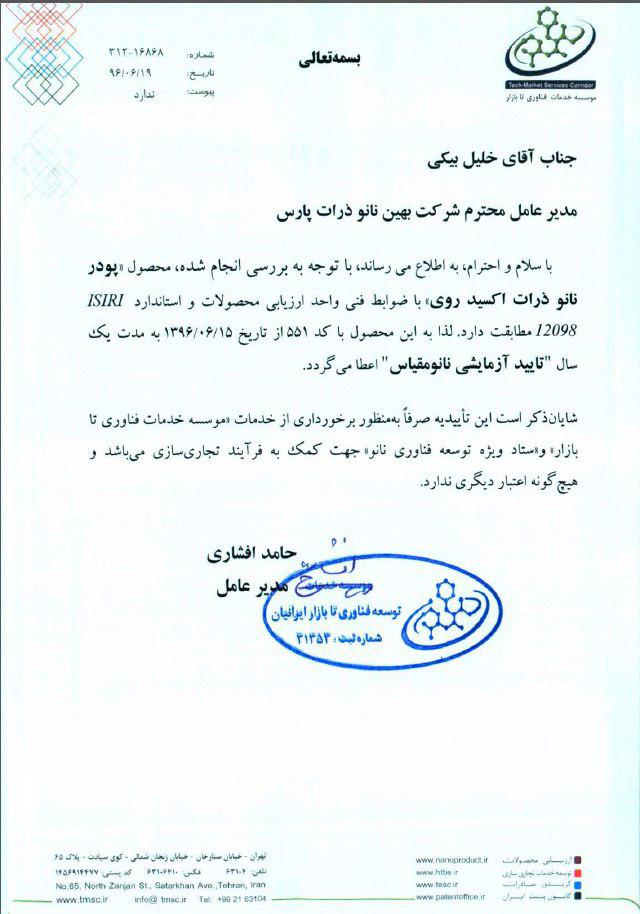 بسمه‌تعالی
Tech-Market Services Corridor
موسسه خدمات فناوری تا بازار
شماره: ۳۱۲-۱۶۸۶۸
تاریخ: ۹۶/۰۶/۱۹
پیوست: ندارد
جناب آقای خلیل بیکی
مدیر عامل محترم شرکت بهین نانو ذرات پارس
با سلام و احترام، به اطلاع می رساند، با توجه به بررسی انجام شده، محصول «پودر
نانو ذرات اکسید روی» با ضوابط فنی واحد ارزیابی محصولات و استاندارد ISIRI
12098 مطابقت دارد. لذا به این محصول با کد ۵۵۱ از تاریخ ۱۳۹۶/۰۶/۱۵ به مدت یک
سال "تایید آزمایشی نانومقیاس" اعطا می گردد.
شایان‌ذکر است این تأییدیه صرفاً به‌منظور برخورداری از خدمات «موسسه خدمات فناوری تا
بازار» و «ستاد ویژه توسعه فناوری نانو» جهت کمک به فرآیند تجاری‌سازی می‌باشد و
هیچ گونه اعتبار دیگری ندارد.
حامد افشاری
مدیر عامل
موسسه خدمات
توسعه فناوری تا بازار ایرانیان
شماره ثبت: ۳۱۴۵۳
ارزیابی محصولات www.nanoproduct.ir
توسعه خدمات تجاری سازی www.htbs.ir
کریدور صادرات www.tesc.ir
کانون پتنت ایران www.patentoffice.ir
تهران - خیابان ستارخان - خیابان زنجان شمالی - کوی سیادت - پلاک ۶۵
تلفن: ۶۳۱۰۴ فکس: ۶۳۱۰۶۴۱۰ کد پستی: ۱۴۵۶۹۱۴۴۷۷
No.65, North Zanjan St., Satarkhan Ave.,Tehran, Iran
www.tmsc.ir info@ tmsc.ir Tel: +98 21 63104